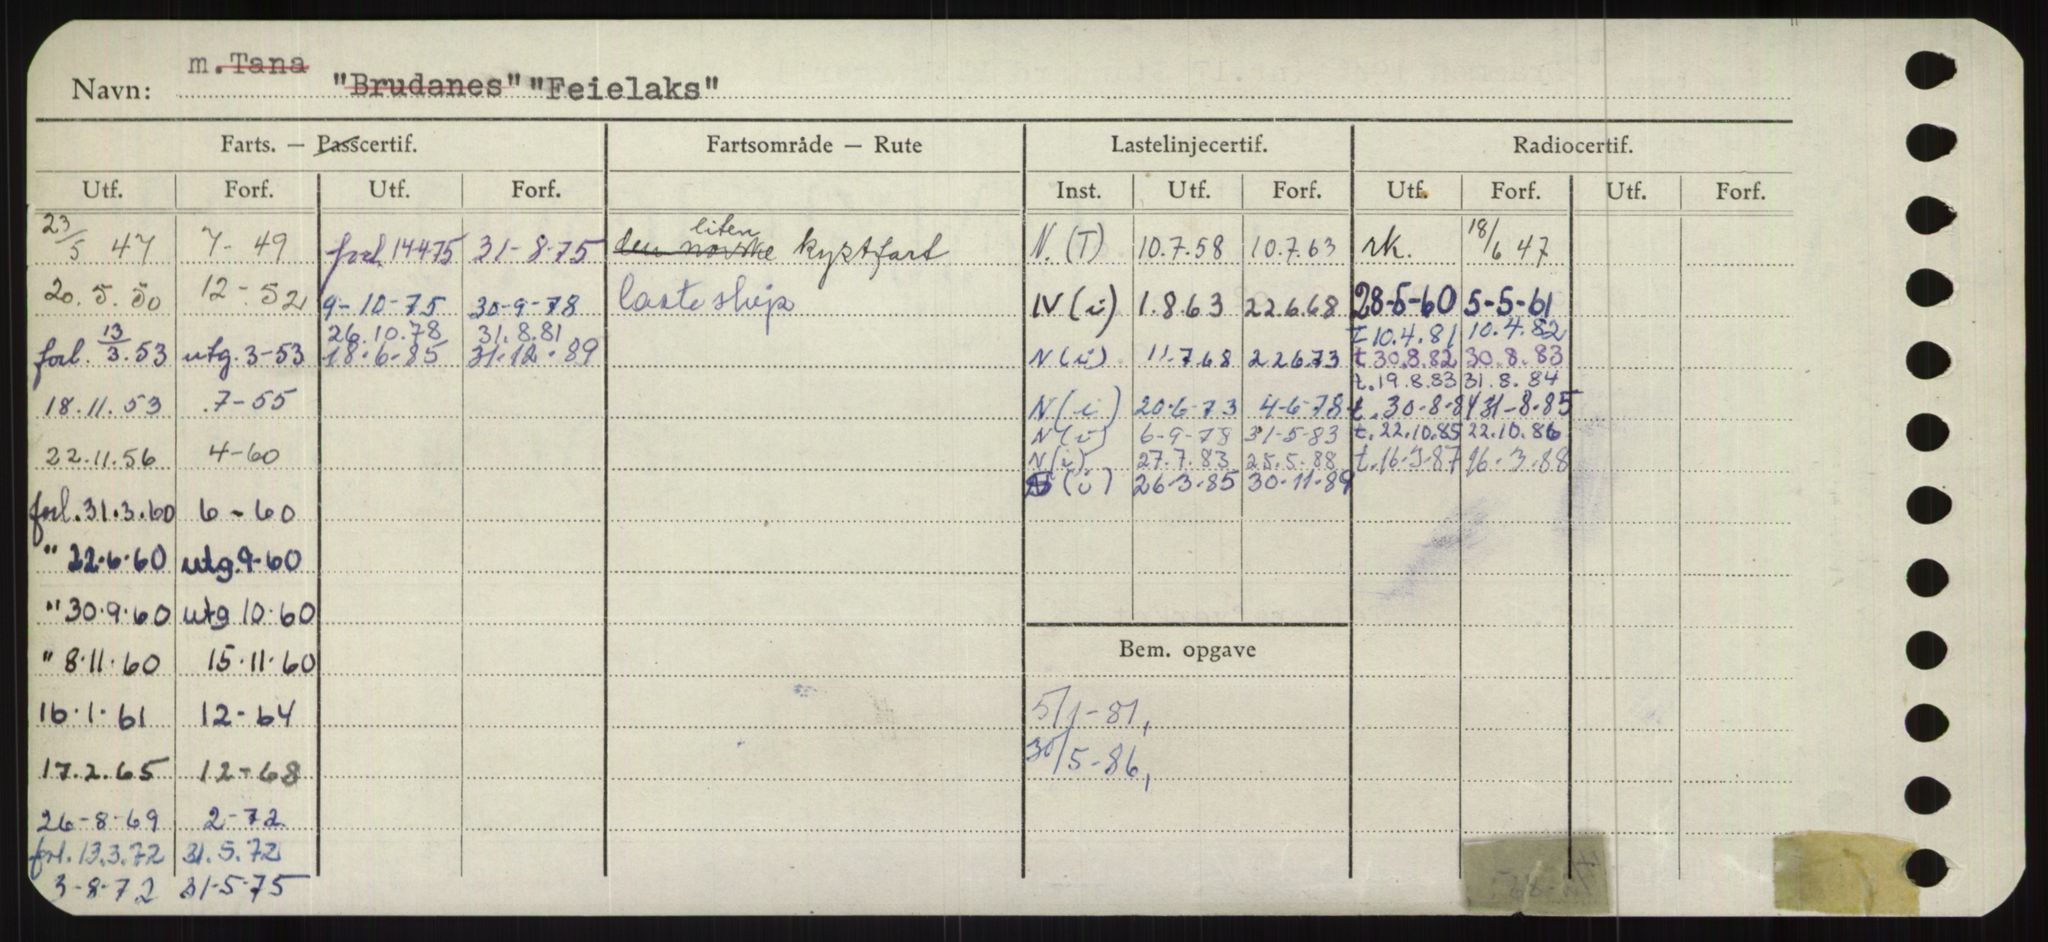 Navn: m. Tana "Brudanes" "Feielaks"
Farts. — Passcertif. Fartsområde — Rute Lastelinjecertif. Radiocertif.
Utf. Forf. Utf. Forf. Inst. Utf. Forf. Utf. Forf. Utf. Forf.
23/5 47 7-49 forl. 14475 31-8-75 den norske liten kystfart N.(T) 10.7.58 10.7.63 rk. 18/6 47
20.5.50 12-52 9-10-75 30-9-78 lasteskip N(i) 1.8.63 22.6.68 28-5-60 5-5-61
26.10.78 31.8.81 t 10.4.81 10.4.82
forl. 13/3.53 utg. 3-53 18.6.85 31.12.89 N(i) 11.7.68 22673 t 30.8.82 30.8.83
t.19.8.83 31.8.84
18.11.53 7-55 N(i) 20-6-73 4-6-78 t.30-8-84 31-8-85
N(i) 6-9-78 31-5-83 t.22.10.85 22.10.86
22.11.56 4-60 N(i) 27.7.83 25.5.88 t.16.3.87 16.3.88
(i) 26.3.85 30.11.89
forl. 31.3.60 6-60
" 22.6.60 utg. 9-60
" 30.9.60 utg 10-60
" 8.11.60 15.11.60
Bem. opgave
16.1.61 12-64 5/1-81,
17.2.65 12-68 30/5-86,
26-8-69 2-72
forl. 13.3.72 31.5.72
3-8-72 31-5-75